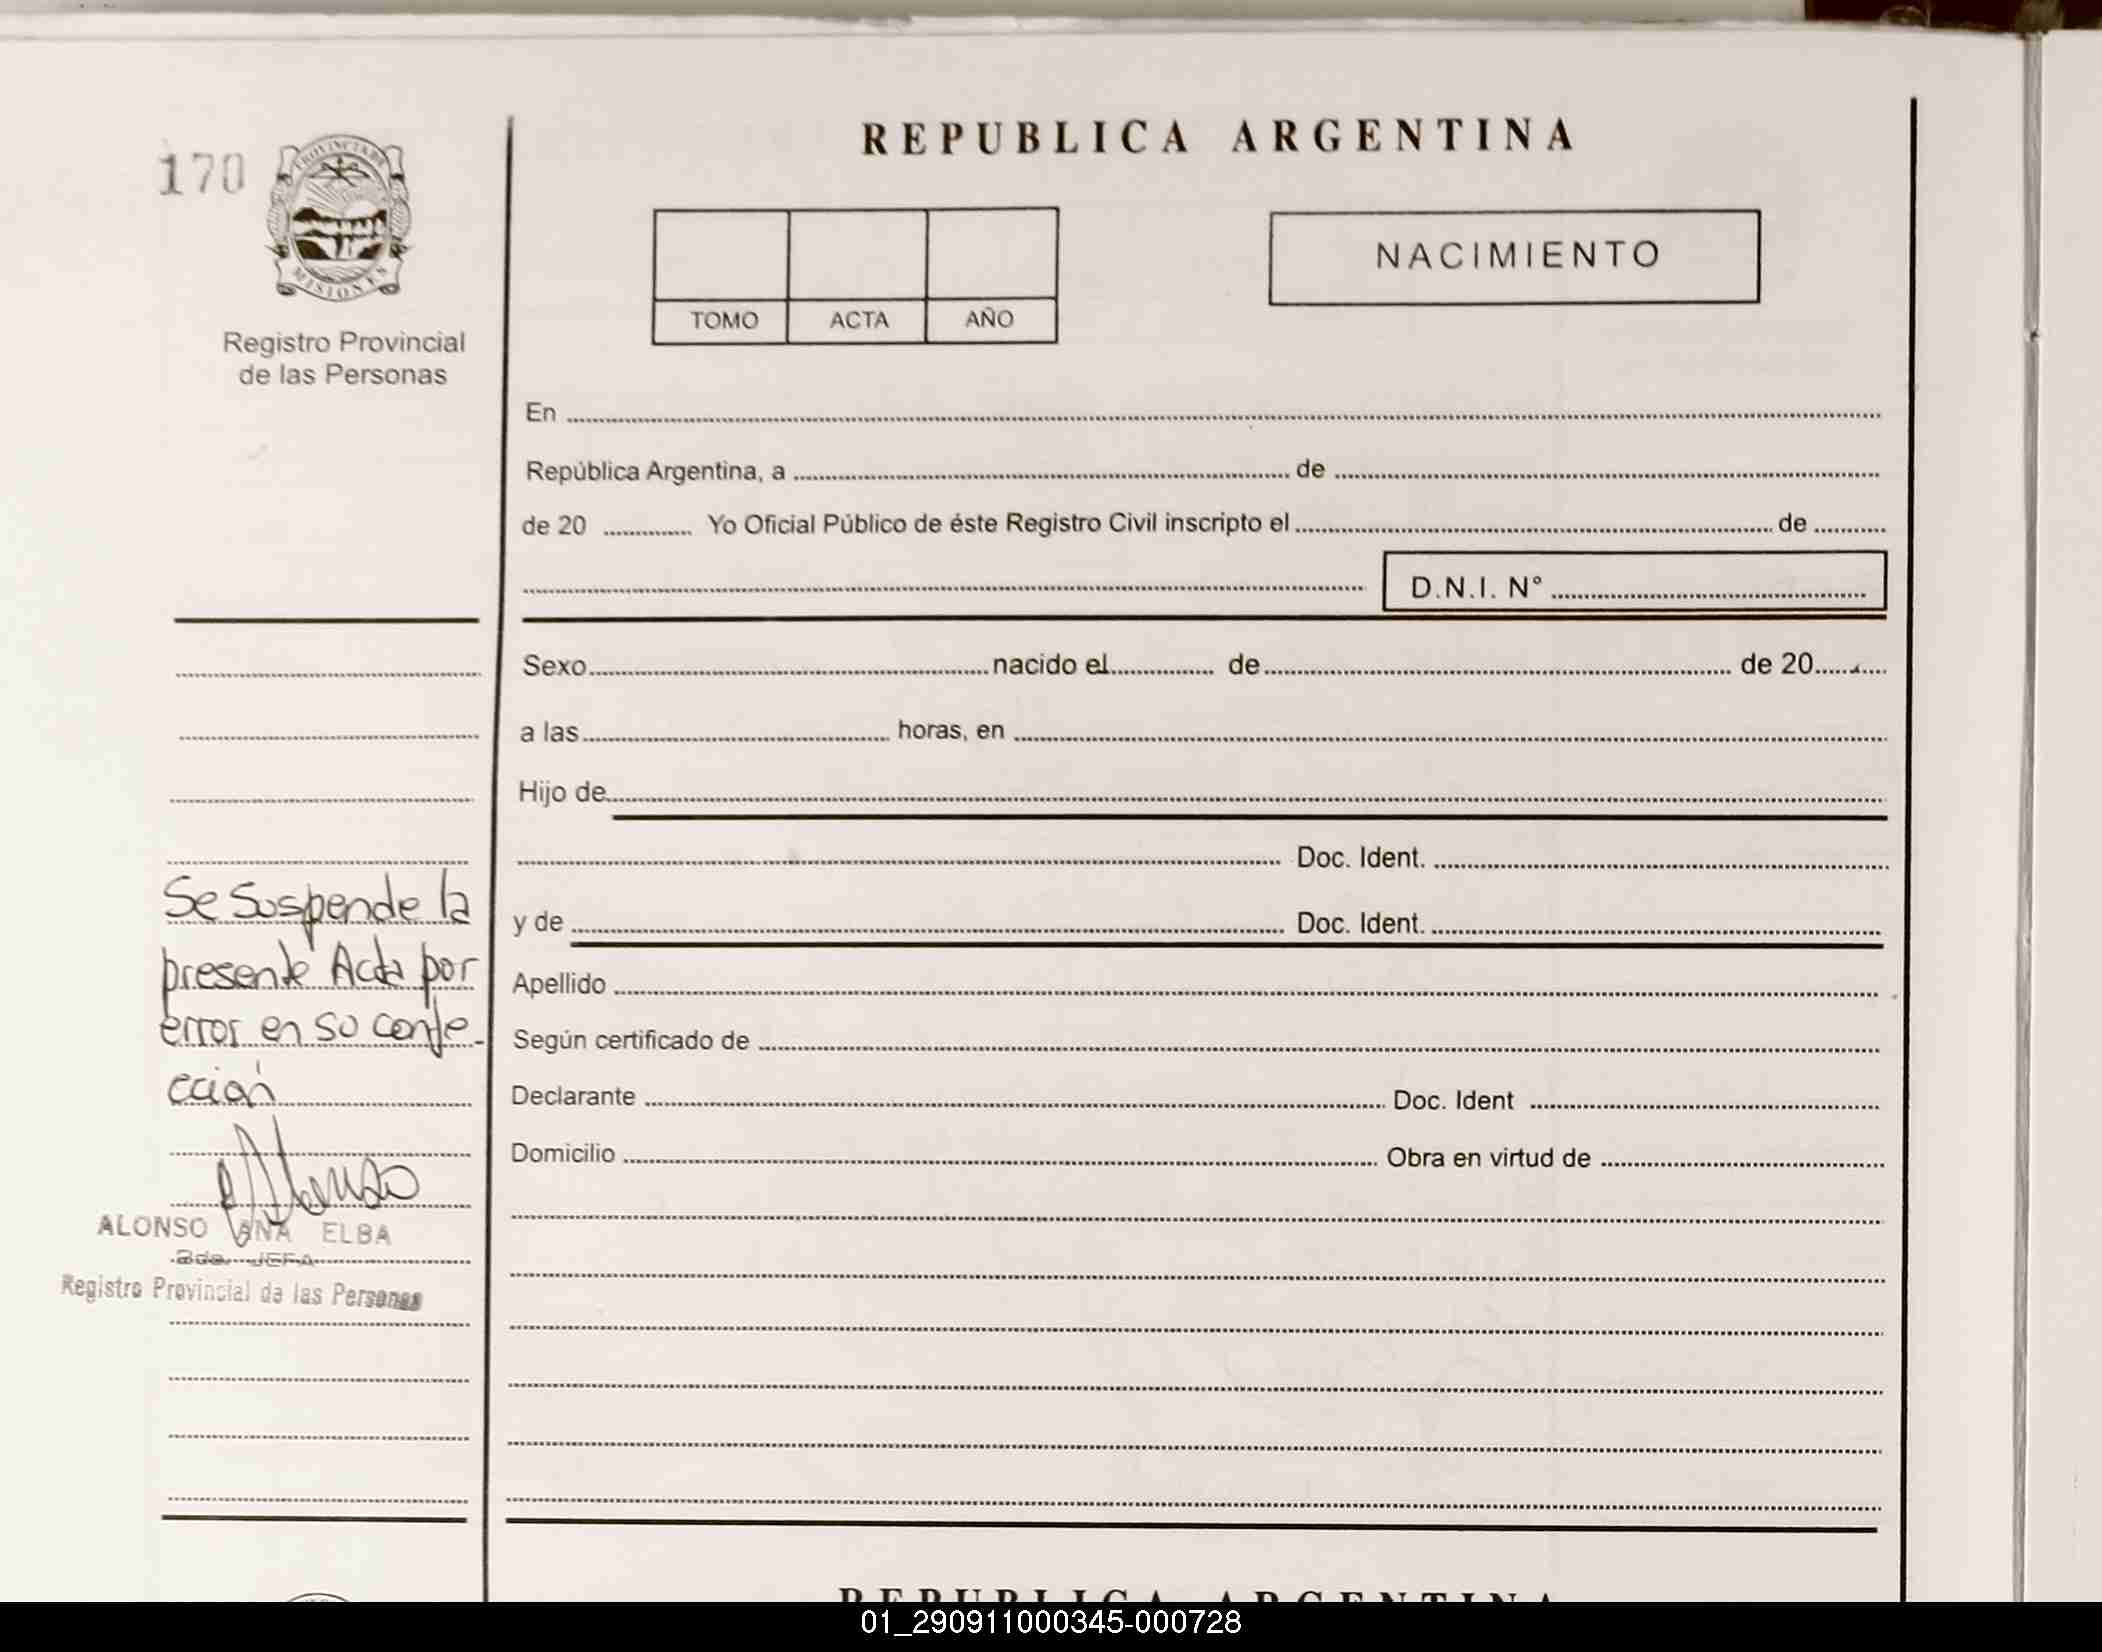 REPUBLICA ARGENTINA
170
PROVINCIA DE
MISIONES
NACIMIENTO
TOMO ACTA AÑO
Registro Provincial
de las Personas
En
República Argentina, a de
de 20 Yo Oficial Público de éste Registro Civil inscripto el de
D.N.I. N°
Sexo nacido el de de 20
a las horas, en
Hijo de
Doc. Ident.
y de Doc. Ident.
Apellido
Según certificado de
Declarante Doc. Ident
Domicilio Obra en virtud de
Se Suspende la
presente Acta por
error en su confe-
cción
Alonso
ALONSO ANA ELBA
2da. JEFA
Registro Provincial de las Personas
REPUBLICA ARGENTINA
01_290911000345-000728